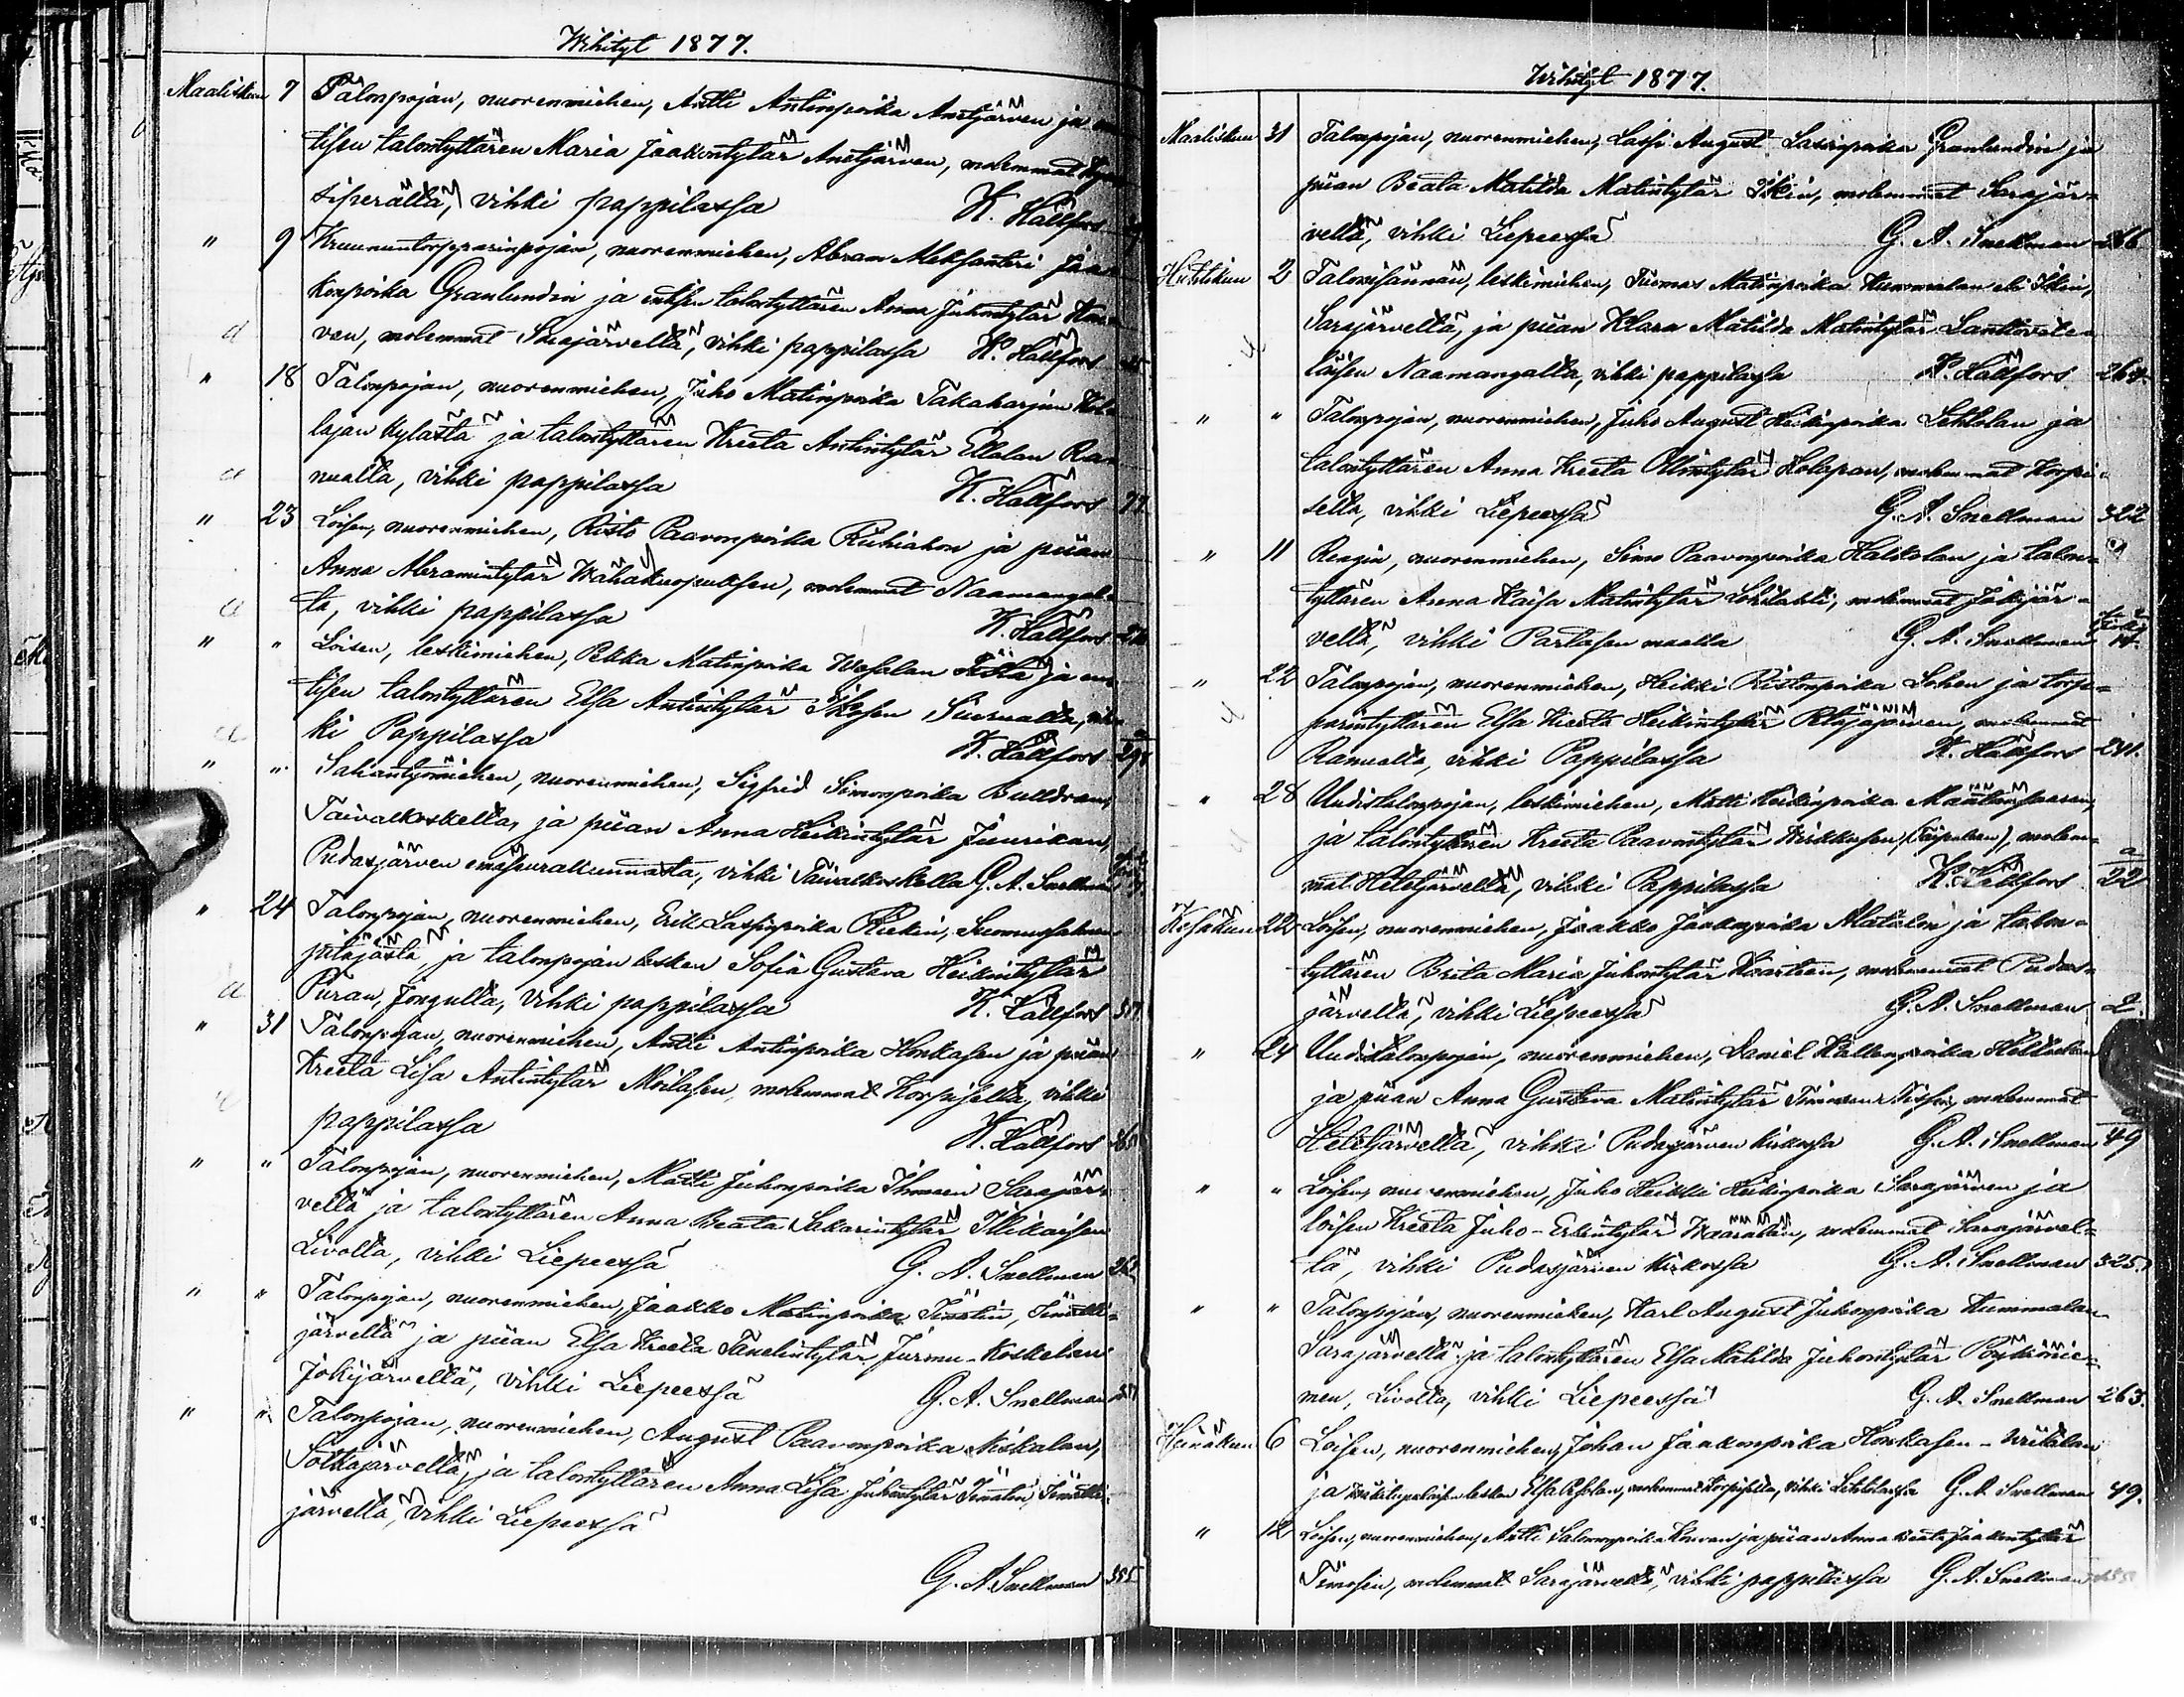 Wihityt 1877.
Maaliskuun 7 Talonpojan, nuorenmiehen, Antti Antinpoika Anetjärven ja
tisen talontyttären Maria Jaakontytär Anetjärven, molemmat
siperältä, vihki pappilassa K. Hällfors
" 9 Kruununtorpparinpojan, nuorenmiehen, Abram Aleksanteri Jaa-
konpoika Granlundin ja entisen talontyttären Anna Juhontytär
ven, molemmat Sarajärveltä, vihki pappilassa K. Hällfors
" 18 Talonpojan, nuorenmiehen, Juho Matinpoika Takaharjun Kol-
lajan kylästä ja talontyttären Kreeta Antintytär Ellalan Ra-
nualta, vihki pappilassa K. Hällfors 77.
" 23 Loisen, nuorenmiehen, Risto Paavonpoika Riihiahon ja piian
Anna Abramintytär Wähäkuopuksen, molemmat Naamangal-
ta, vihki pappilassa K. Hällfors
" " Loisen, leskimiehen, Pekka Matinpoika Wasalan ja en-
tisen talontyttären Elsa Antintytär Ikosen Siurualta, vih-
ki Pappilassa K. Hällfors
" " Sahantyömiehen, nuorenmiehen, Sigfrid Simonpoika
Taivalkoskelta, ja piian Anna Heikintytär Juurikan,
Pudasjärven emäseurakunnasta, vihki Taivalkoskella G. A. Snellman
" 24 Talonpojan, nuorenmiehen, Erik Lassinpoika Riekin, Suomussalmen
pitäjästä, ja talonpojan lesken Sofia Gustava Heikintytär
Puran, Jongulta, vihki pappilassa K. Hällfors
" 31 Talonpojan, nuorenmiehen, Antti Antinpoika Honkasen ja piian
Kreeta Lisa Antintytär Moilasen, molemmat Korpiselta, vihki
pappilassa K. Hällfors
" " Talonpojan, nuorenmiehen, Matti Juhonpoika Ihmasen Sarajär-
veltä ja talontyttären Anna Beata Sakarintytär Illikaisen
Livolta, vihki Liepeessä G. A. Snellman 262
" " Talonpojan, nuorenmiehen, Jaakko Matinpoika
järveltä ja piian Elsa Kreeta Tanelintytär Jurmu-Koskelan
Jokijärveltä, vihki Liepeessä G. A. Snellman
" " Talonpojan, nuorenmiehen, August Paavonpoika Niskalan,
Sotkajärveltä, ja talontyttären Anna Lisa Juhontytär
järveltä, vihki Liepeessä
G. A. Snellman 355
Wihityt 1877.
Maaliskuun 31 Talonpojan, nuorenmiehen, Lassi August Lassinpoika Granlundin ja
piian Beata Matilda Matintytär Iikin, molemmat Sarajär-
veltä, vihki Liepeessä G. A. Snellman 266
Huhtikuun 2 Talonisännän, leskimiehen, Tuomas Matinpoika Kummalan eli Iikin,
Sarajärveltä, ja piian Klara Matilda Matintytär
läisen Naamangalta, vihki pappilassa K. Hällfors 264.
" " Talonpojan, nuorenmiehen, Juho August Heikinpoika Lehtolan ja
talontyttären Anna Kreeta Ollintytär Holapan, molemmat Korpi-
selta, vihki Liepeessä G. A. Snellman 322
" 11 Rengin, nuorenmiehen, Simo Paavonpoika Halkolan ja talon-
tyttären Anna Kaisa Matintytär Lohilahti, molemmat Jokijär-
veltä, vihki Partasen maalla G. A. Snellman
" 22 Talonpojan, nuorenmiehen, Heikki Ristonpoika Lohen ja torp-
parintyttären Elsa Kreeta Heikintytär Petäjäjärven, molemmat
Ranualta, vihki Pappilassa K. Hällfors 241.
" 28 Uudistalonpojan, leskimiehen, Matti Heikinpoika
ja talontyttären Kreeta Paavontytär Wirkkusen, molem-
mat Hetejärveltä, vihki Pappilassa K. Hällfors 22
Kesäkuun 22 Loisen, nuorenmiehen, Jaakko Jaakonpoika Matalan ja talon-
tyttären Brita Maria Juhontytär molemmat Pudas-
järveltä, vihki Liepeessä G. A. Snellman 2.
" 24 Uudistalonpojan, nuorenmiehen, Daniel Kallenpoika
ja piian Anna Gustava Matintytär molemmat
Hetejärveltä, vihki Pudasjärven kirkossa G. A. Snellman 49
" " Loisen, nuorenmiehen, Juho Heikki Heikinpoika Sarajärven ja
loisen Kreeta Juho-Erkintytär Waaralan, molemmat Sarajärvel-
tä, vihki Pudasjärven kirkossa G. A. Snellman 325.
" " Talonpojan, nuorenmiehen, Karl August Juhonpoika Kummalan
Sarajärveltä ja talontyttären Elsa Matilda Juhontytär Pöykiönie-
men, Livolta, vihki Liepeessä G. A. Snellman 263.
Heinäkuun 6 Loisen, nuorenmiehen, Johan Jaakonpoika Honkasen-
ja lesken Elsa molemmat Korpiselta, vihki Lehtolassa G. A. Snellman 49.
" 12 Loisen, nuorenmiehen, Antti Salomonpoika ja piian Anna Beata Jaakontytär
Timosen, molemmat Sarajärveltä, vihki pappilassa G. A. Snellman